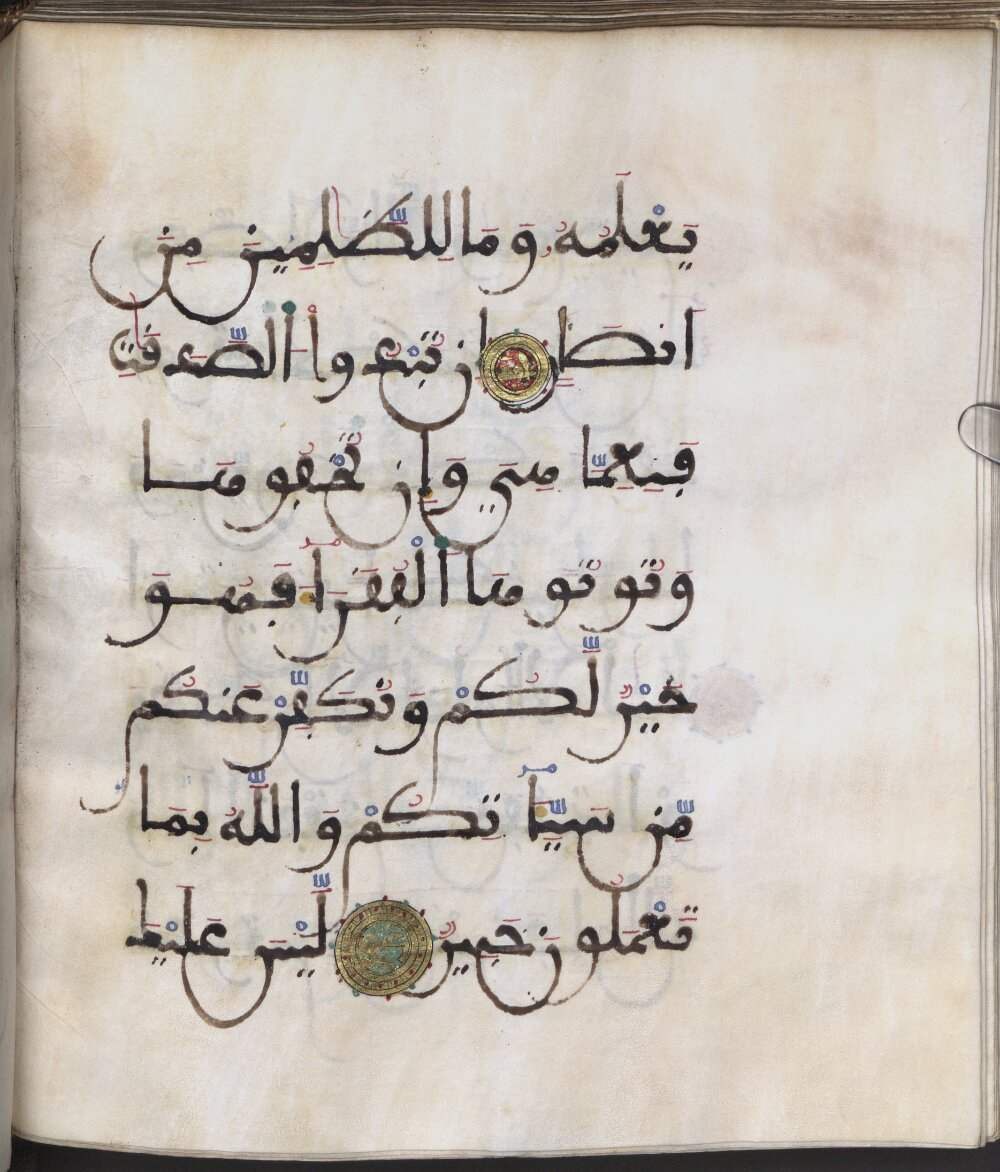 يعلمه وما للظلمين من
انصار ان تبدوا الصدقت
فنعما هي وان تخفوها
وتوتوها الفقرا فهو
خير لكم ونكفر عنكم
من سياتكم والله بما
تعملون خبير ليس عليك